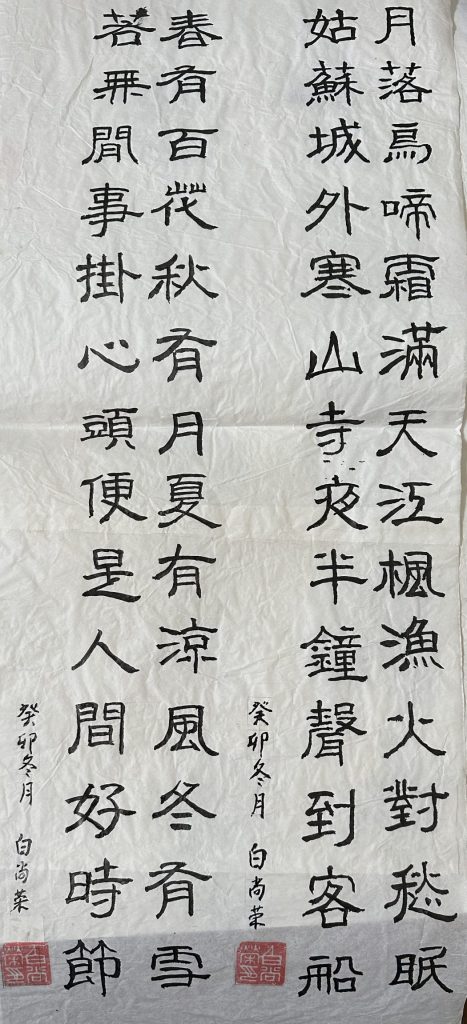 月落烏啼霜滿天江楓漁火對愁眠
姑蘇城外寒山寺夜半鐘聲到客船
癸卯冬月 白尚荣
白尚荣印
春有百花秋有月夏有涼風冬有雪
若無閒事掛心頭便是人間好時節
癸卯冬月 白尚荣
白尚荣印